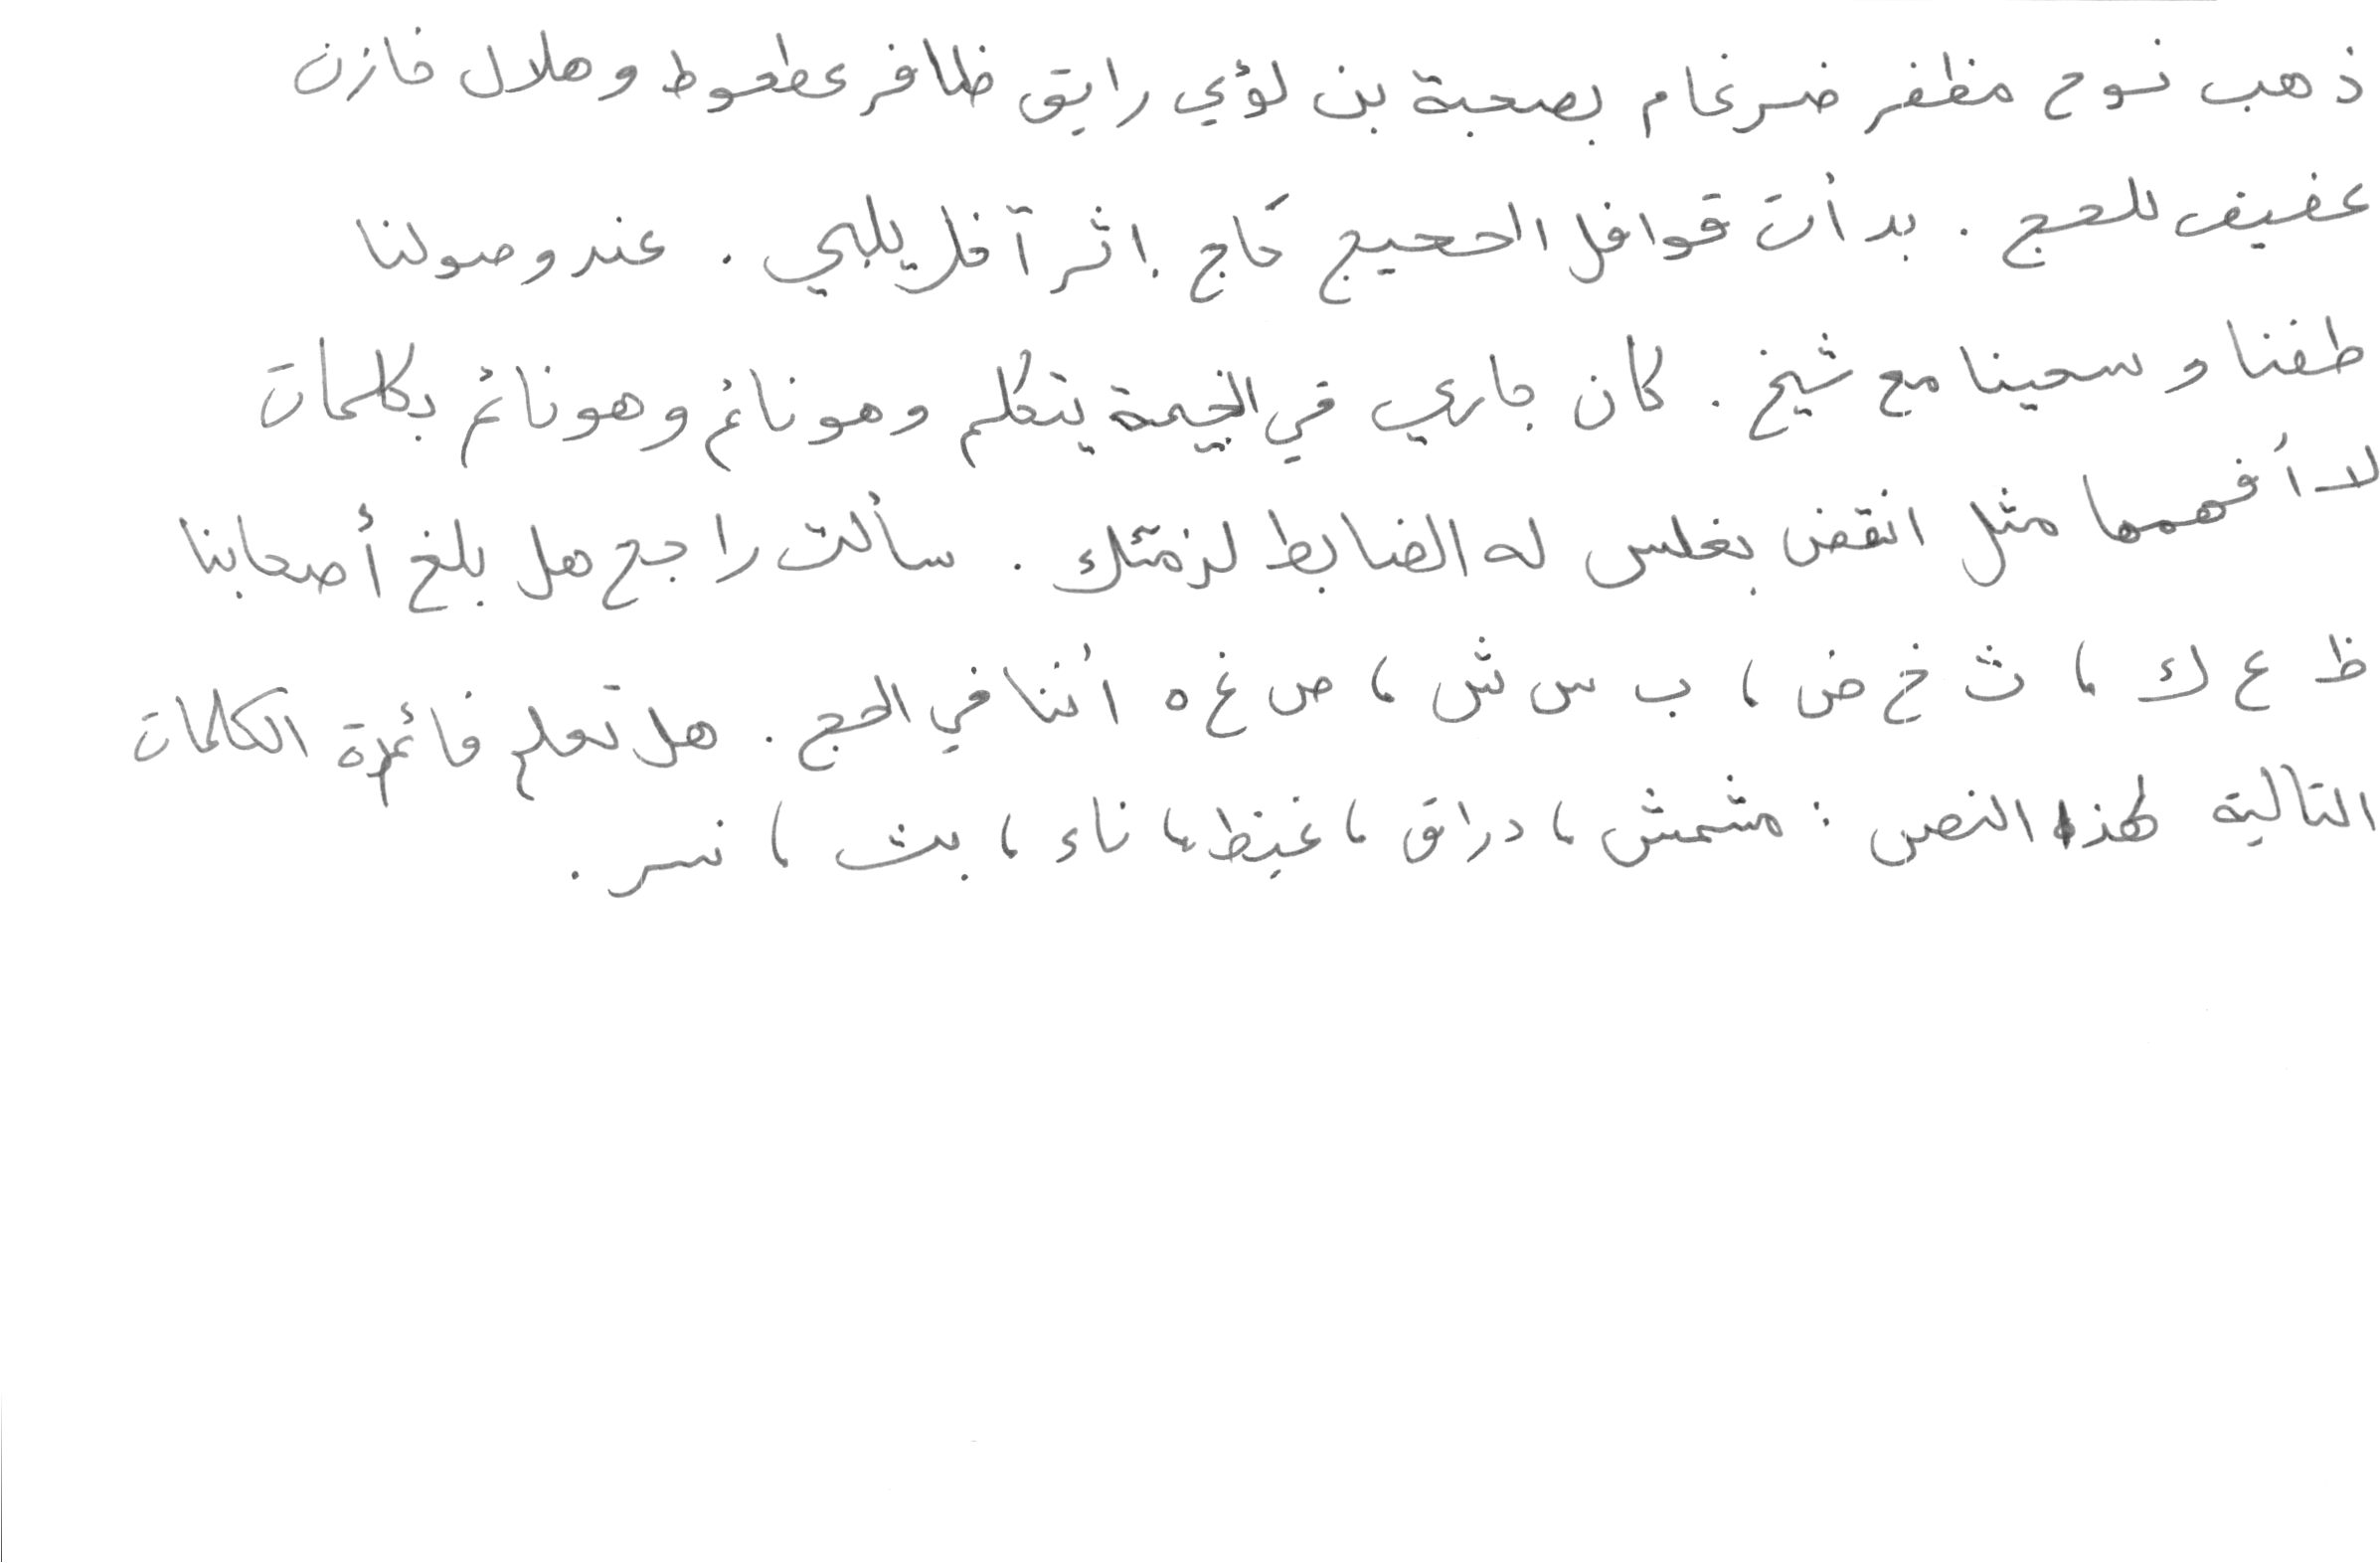 ذهب نوح مظفر ضرغام بصحبة بن لؤي رايق ظافر عطعوط وهلال خازن
عفيف للحج . بدأت قوافل الحجيج حاج اثر آخر يلبي . عند وصولنا
طفنا وسعينا مع شيخ . كان جاري في الخيمة يتكلم وهو نائم وهو نائم بكلمات
لا أفهمها مثل انقض بغلس له الضابط لزمتك . سألت راجح هل بلغ أصحابنا
ظ ع ك ، ث خ ض ، ب س ش ، ص غ ه أننا في الحج . هل تعلم فائدة الكلمات
التالية لهذا النص : مشمش ، دراق ، غيظ ، ناء ، بث ، نسر .